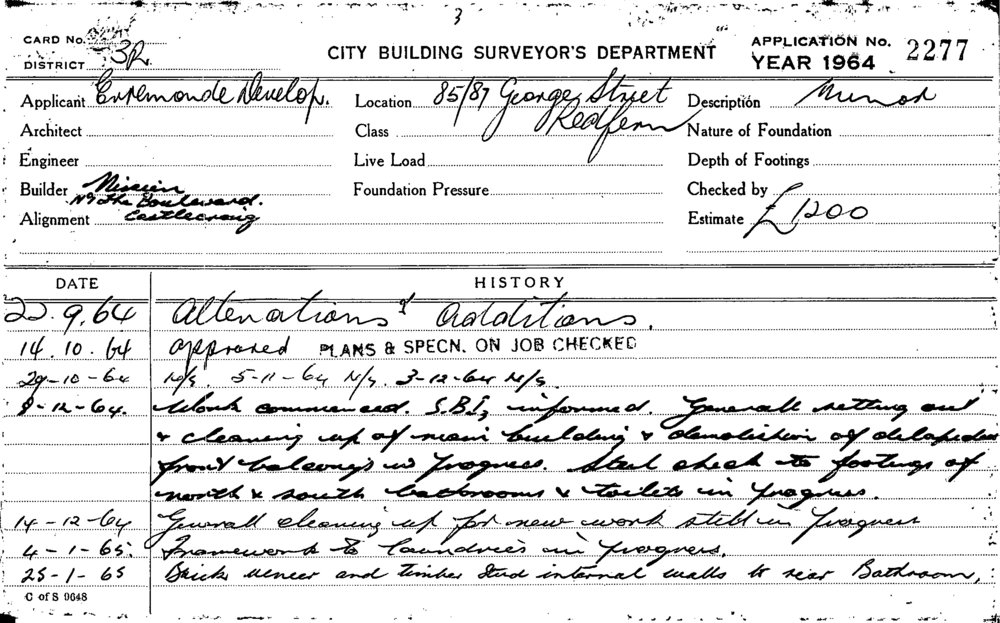 3
CARD No.
DISTRICT 3R
CITY BUILDING SURVEYOR'S DEPARTMENT
APPLICATION No. 2277
YEAR 1964
Applicant Develop.
Location 85/87 George Street
Redfern
Description Minor
Architect
Class
Nature of Foundation
Engineer
Live Load
Depth of Footings
Builder
Foundation Pressure
Checked by
The Boulevard.
Alignment Castlecraig
Estimate £1200
DATE
HISTORY
22.9.64 Alterations & Additions.
14.10.64 approved PLANS & SPECN. ON JOB CHECKED
29-10-64 N/s. 5-11-64 N/s. 3-12-64 N/s.
8-12-64. Work commenced. S.B.I. informed. Generall setting out
& cleaning up of main building & demolishion of
front balcony's in progress. check to footings of
north & south bathrooms & toilets in progress.
14-12-64 Generall cleaning up for new work still in progress
4-1-65. Framework to laundries in progress.
25-1-65 Brick veneer and timber stud internal walls to rear Bathroom,
C of S 9648